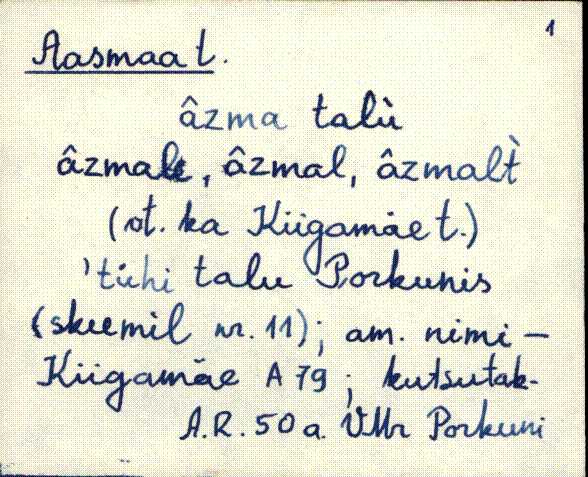 1
Aasmaa t.
âzma talù
âzmale, âzmal, âzmalt̀
(vt. ka Kiigamäe t.)
'tühi talu Porkunis
(skeemil nr. 11); am. nimi –
Kiigamäe A 79; kutsutak-
A.R. 50 a. VMr Porkuni